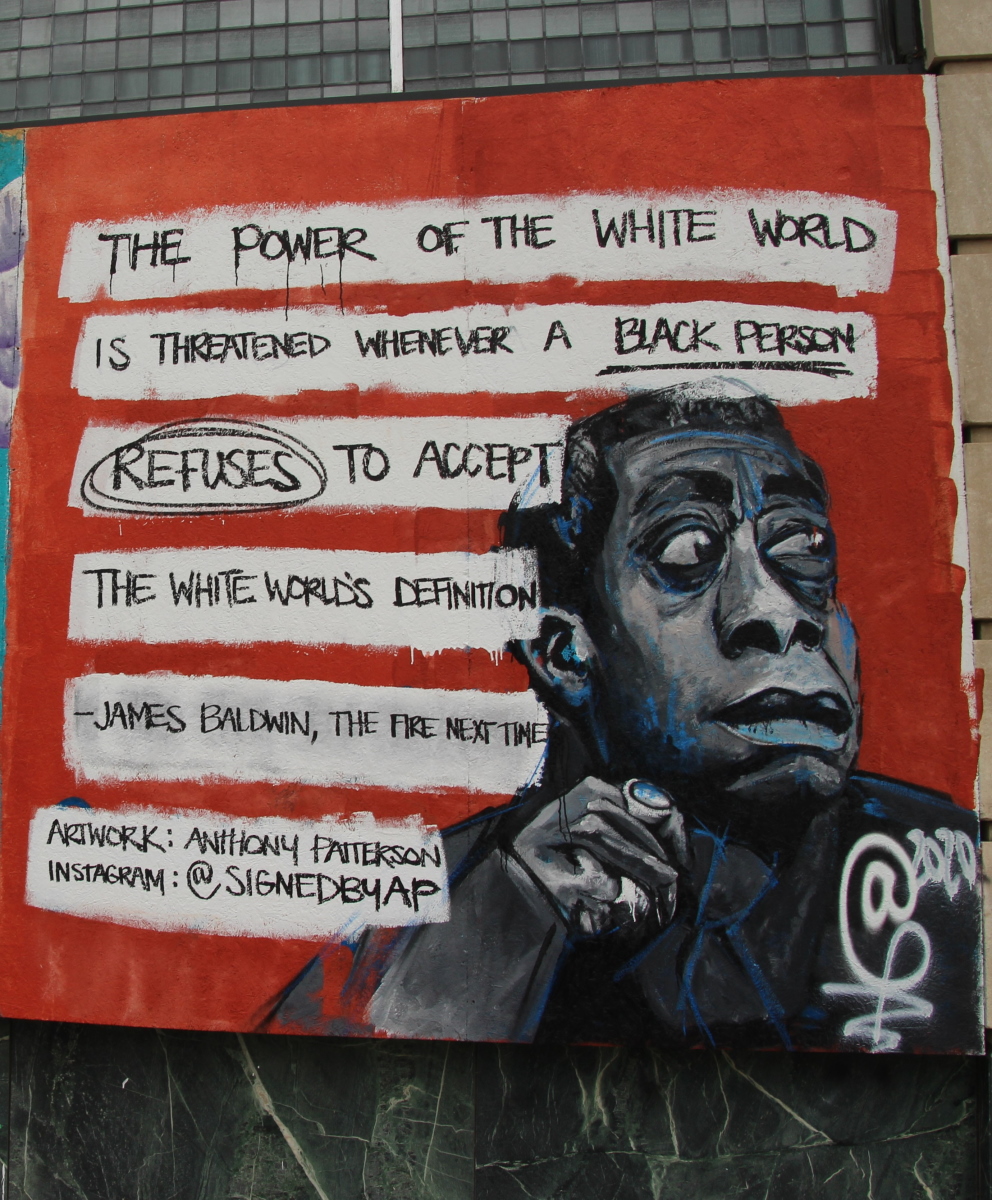 THE POWER OF THE WHITE WORLD
IS THREATENED WHENEVER A BLACK PERSON
REFUSES TO ACCEPT
THE WHITE WORLD'S DEFINITION
-JAMES BALDWIN, THE FIRE NEXT TIME
ARTWORK: ANTHONY PATTERSON
INSTAGRAM: @SIGNEDBYAP
2020